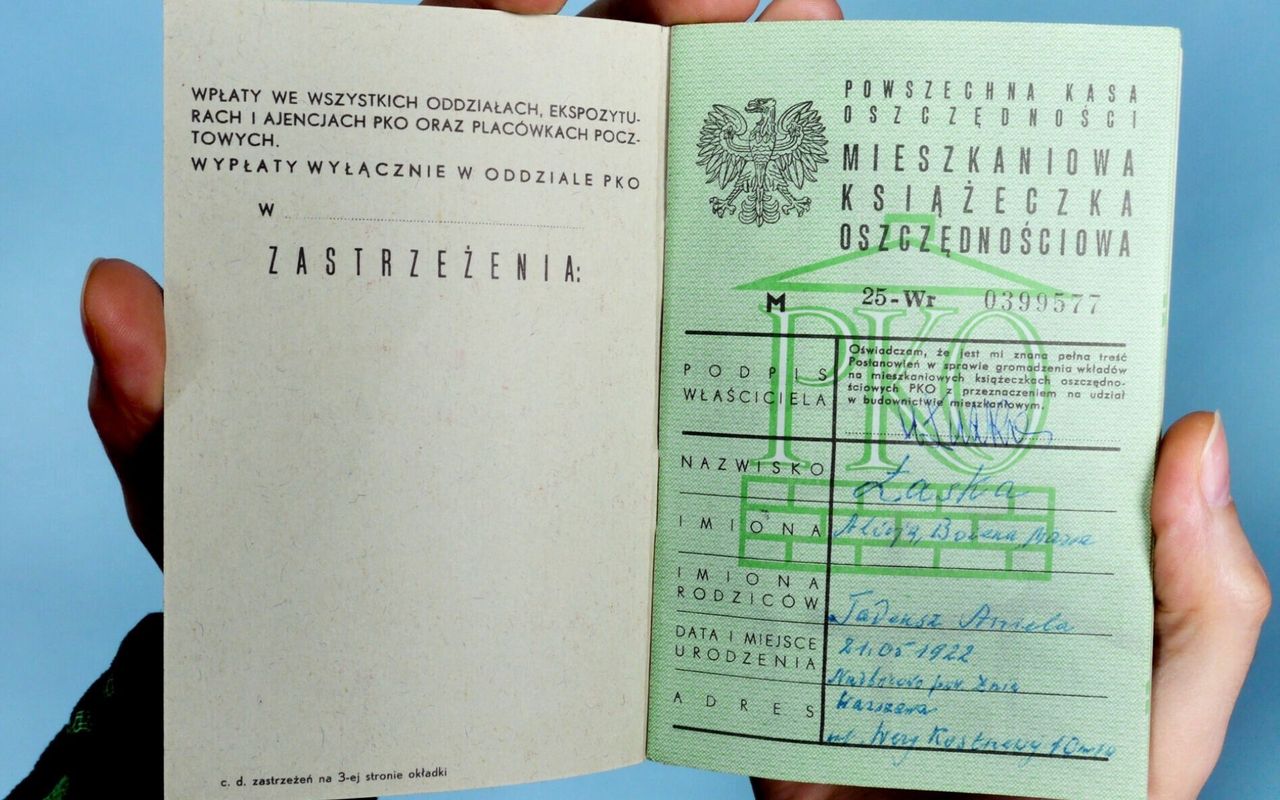 WPŁATY WE WSZYSTKICH ODDZIAŁACH, EKSPOZYTU-
RACH I AJENCJACH PKO ORAZ PLACÓWKACH POCZ-
TOWYCH.
WYPŁATY WYŁĄCZNIE W ODDZIALE PKO
W
ZASTRZEŻENIA:
c. d. zastrzeżeń na 3-ej stronie okładki
POWSZECHNA KASA
OSZCZĘDNOŚCI
MIESZKANIOWA
KSIĄŻECZKA
OSZCZĘDNOŚCIOWA
M 25-Wr 0399577
PKO
PODPIS
WŁAŚCICIELA
Oświadczam, że jest mi znana pełna treść
Postanowień w sprawie gromadzenia wkładów
na mieszkaniowych książeczkach oszczędno-
ściowych PKO z przeznaczeniem na udział
w budownictwie mieszkaniowym.
NAZWISKO Łaska
IMIONA Alicja, Bożena, Maria
IMIONA
RODZICÓW Tadeusz Aniela
DATA I MIEJSCE
URODZENIA 21.05 1922
pow. Żnin
ADRES Warszawa
ul. Wery Kostrzewy